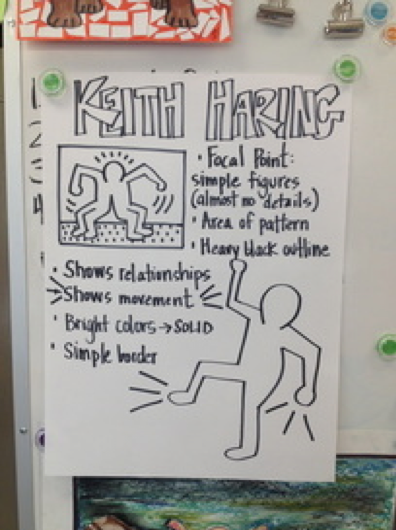 KEITH HARING
• Focal Point:
simple figures
(almost no details)
• Area of pattern
• Heavy black outline
• Shows relationships
Shows movement
• Bright colors → SOLID
• Simple border